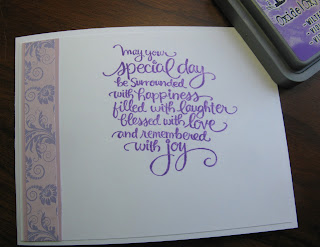 may your
special day
be surrounded
with happiness
filled with laughter
blessed with love
and remembered
with joy
Oxide